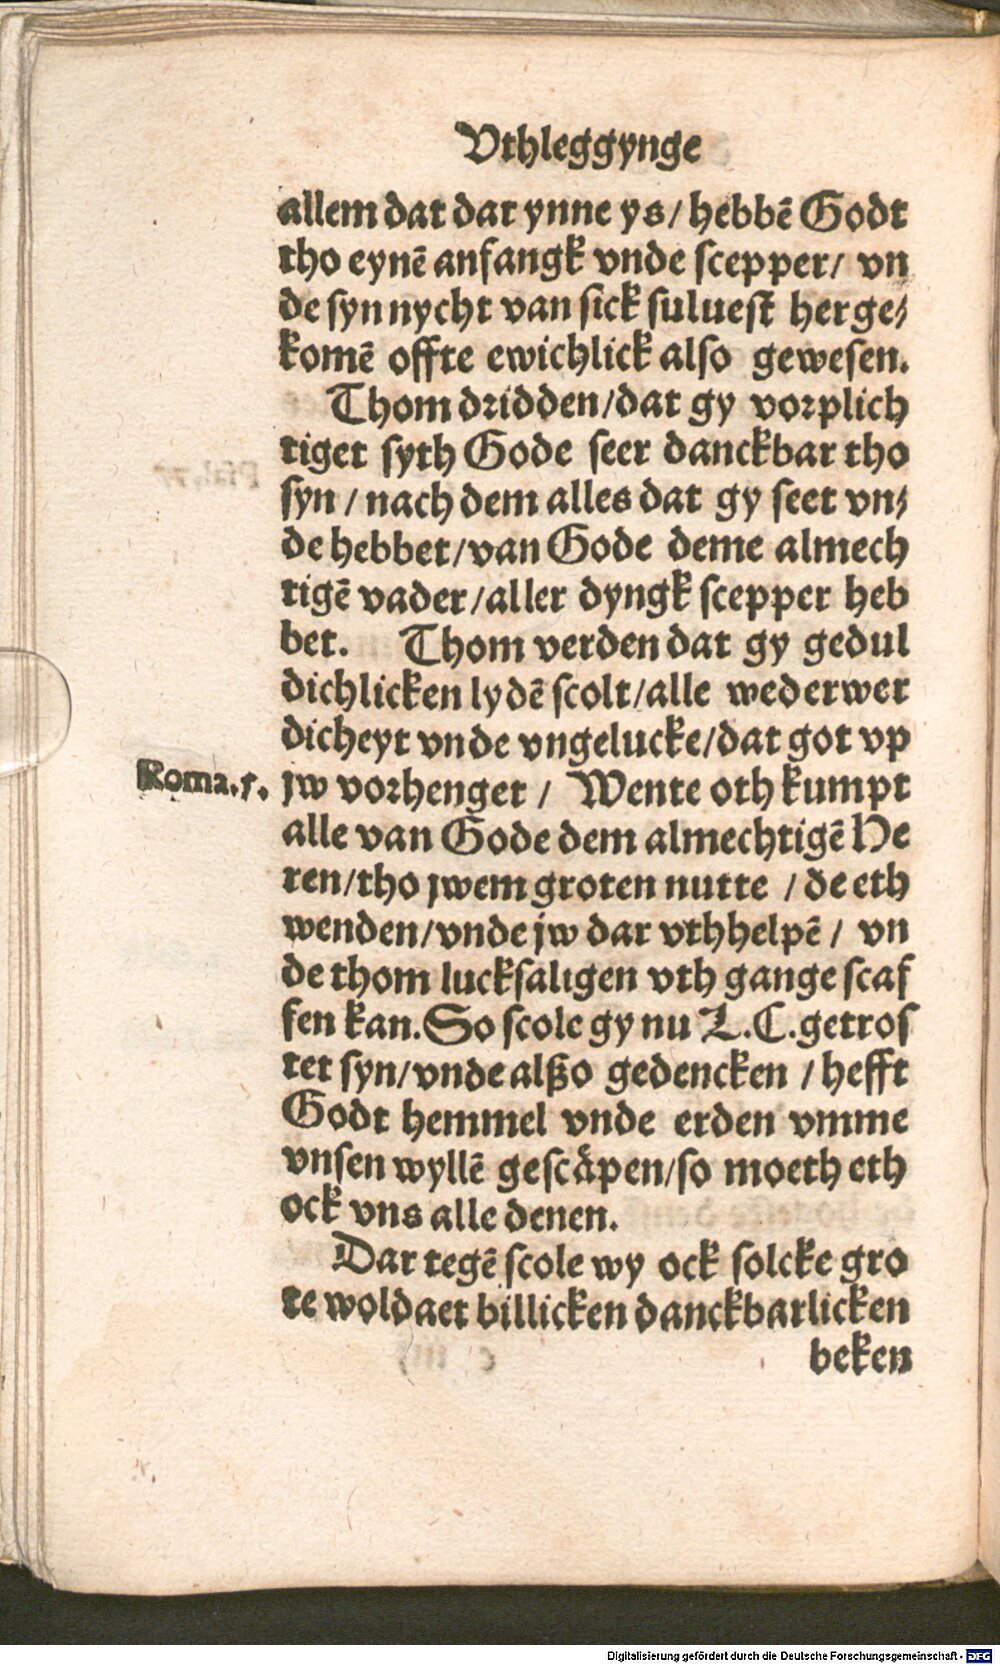 Vthleggynge
allem dat dar ynne ys / hebbē Godt
tho eynē anfangk vnde scepper / vn
de syn nycht van sick suluest herge⸗
komē offte ewichlick also gewesen.
Thom dridden / dat gy vorplich
tiget syth Gode seer danckbar tho
syn / nach dem alles dat gy seet vn⸗
de hebbet / van Gode deme almech
tigē vader / aller dyngk scepper heb
bet. Thom verden dat gy gedul
dichlicken lydē scolt / alle wederwer
dicheyt vnde vngelucke / dat got vp
Roma.5. jw vorhenget / Wente oth kumpt
alle van Gode dem almechtigē He
ren / tho jwem groten nutte / de eth
wenden / vnde jw dar vthhelpē / vn
de thom lucksaligen vth gange scaf
fen kan. So scole gy nu L.C. getros
tet syn / vnde alßo gedencken / hefft
Godt hemmel vnde erden vmme
vnsen wyllē gescåpen / so moeth eth
ock vns alle denen.
Dar tegē scole wy ock solcke gro
te woldaet billicken danckbarlicken
beken
Digitalisierung gefördert durch die Deutsche Forschungsgemeinschaft - DFG